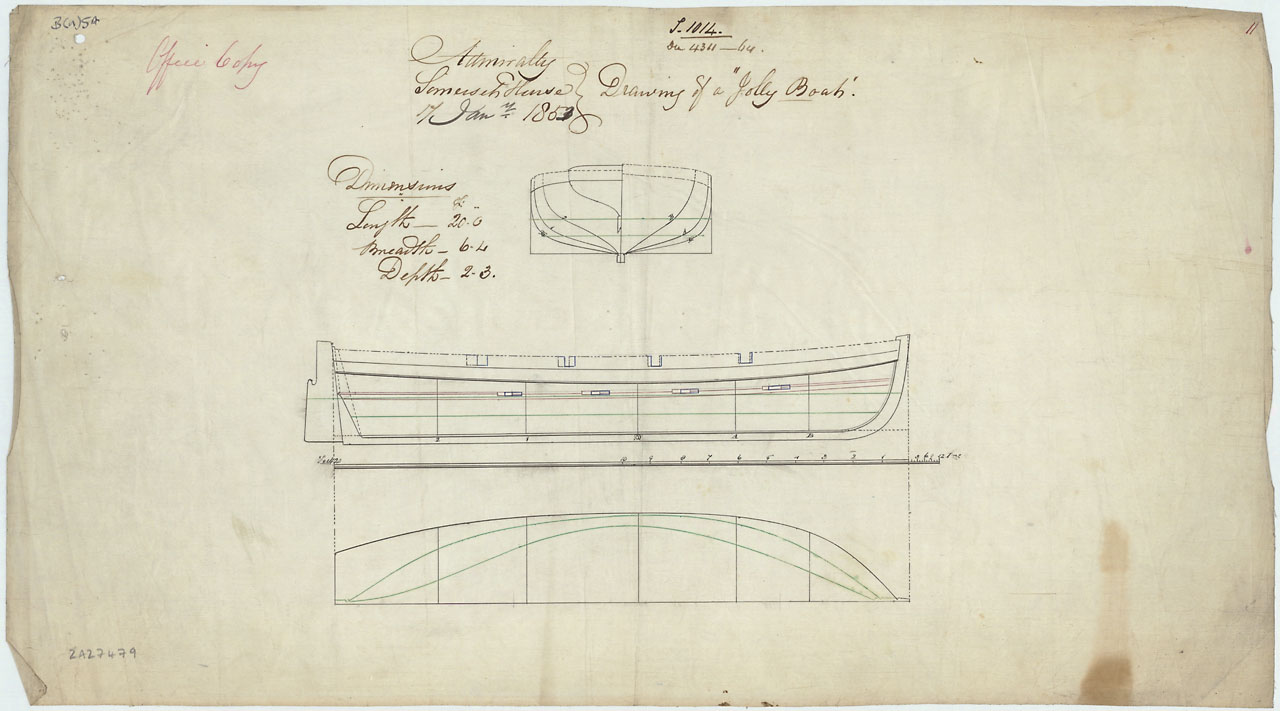 B(A)5A
Office Copy
S. 1014.
434 — 64.
11
Admiralty
Somerset House
17 Jan.ry 1853
Drawing of a "Jolly Boat".
Dimensions
Length — 20.0
Breadth — 6.4
Depth — 2.3.
2 1 A B
10 9 8 7 6 5 4 3 2 1
ZAZ7479